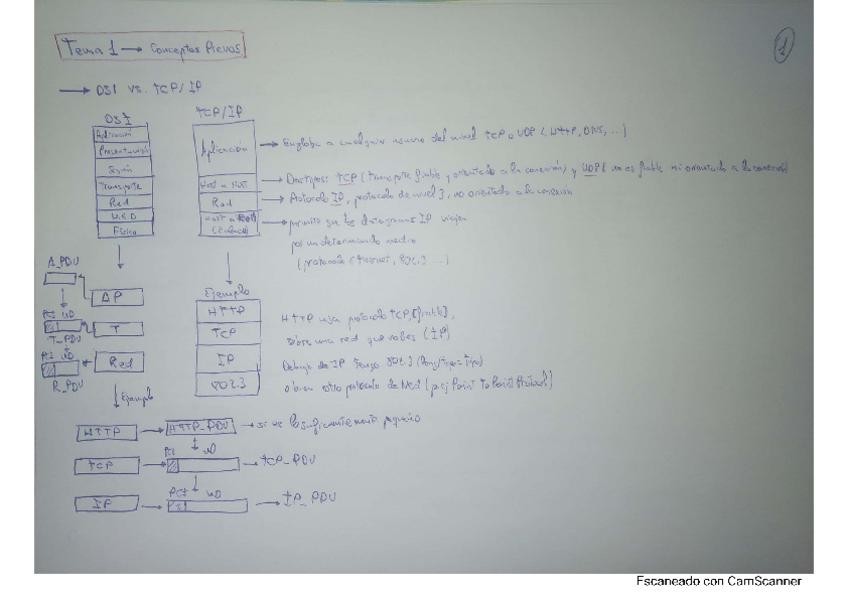 Tema 1 → Conceptos Previos
1
→ OSI vs. TCP/IP
OSI
Aplicación
Presentación
Sesión
Transporte
Red
Física
TCP/IP
Aplicación
Host a Host
Red
(Enlace)
→ Engloba a cualquier usuario del nivel TCP o UDP (HTTP, DNS, ...)
→ Dos tipos: TCP (transporte fiable y orientado a la conexión) y UDP (no es fiable ni orientado a la conexión)
→ Protocolo IP, protocolo de nivel 3, no orientado a la conexión
→ permite que los datagramas IP viajen
por un determinado medio
(protocolo Ethernet, 802.3 ...)
A_PDU
AP
PCI UD
T
T_PDU
PCI UD
Red
R_PDU
Ejemplo
HTTP
TCP
IP
802.3
HTTP usa protocolo TCP,
sobre una red que sabes (IP)
Debajo de IP tengo 802.3
o bien otro protocolo de (p.ej Point To Point Protocol)
Ejemplo
HTTP → HTTP_PDU → si es lo suficientemente pequeño
PCI UD
TCP → TCP_PDU
PCI UD
IP → IP_PDU
Escaneado con CamScanner